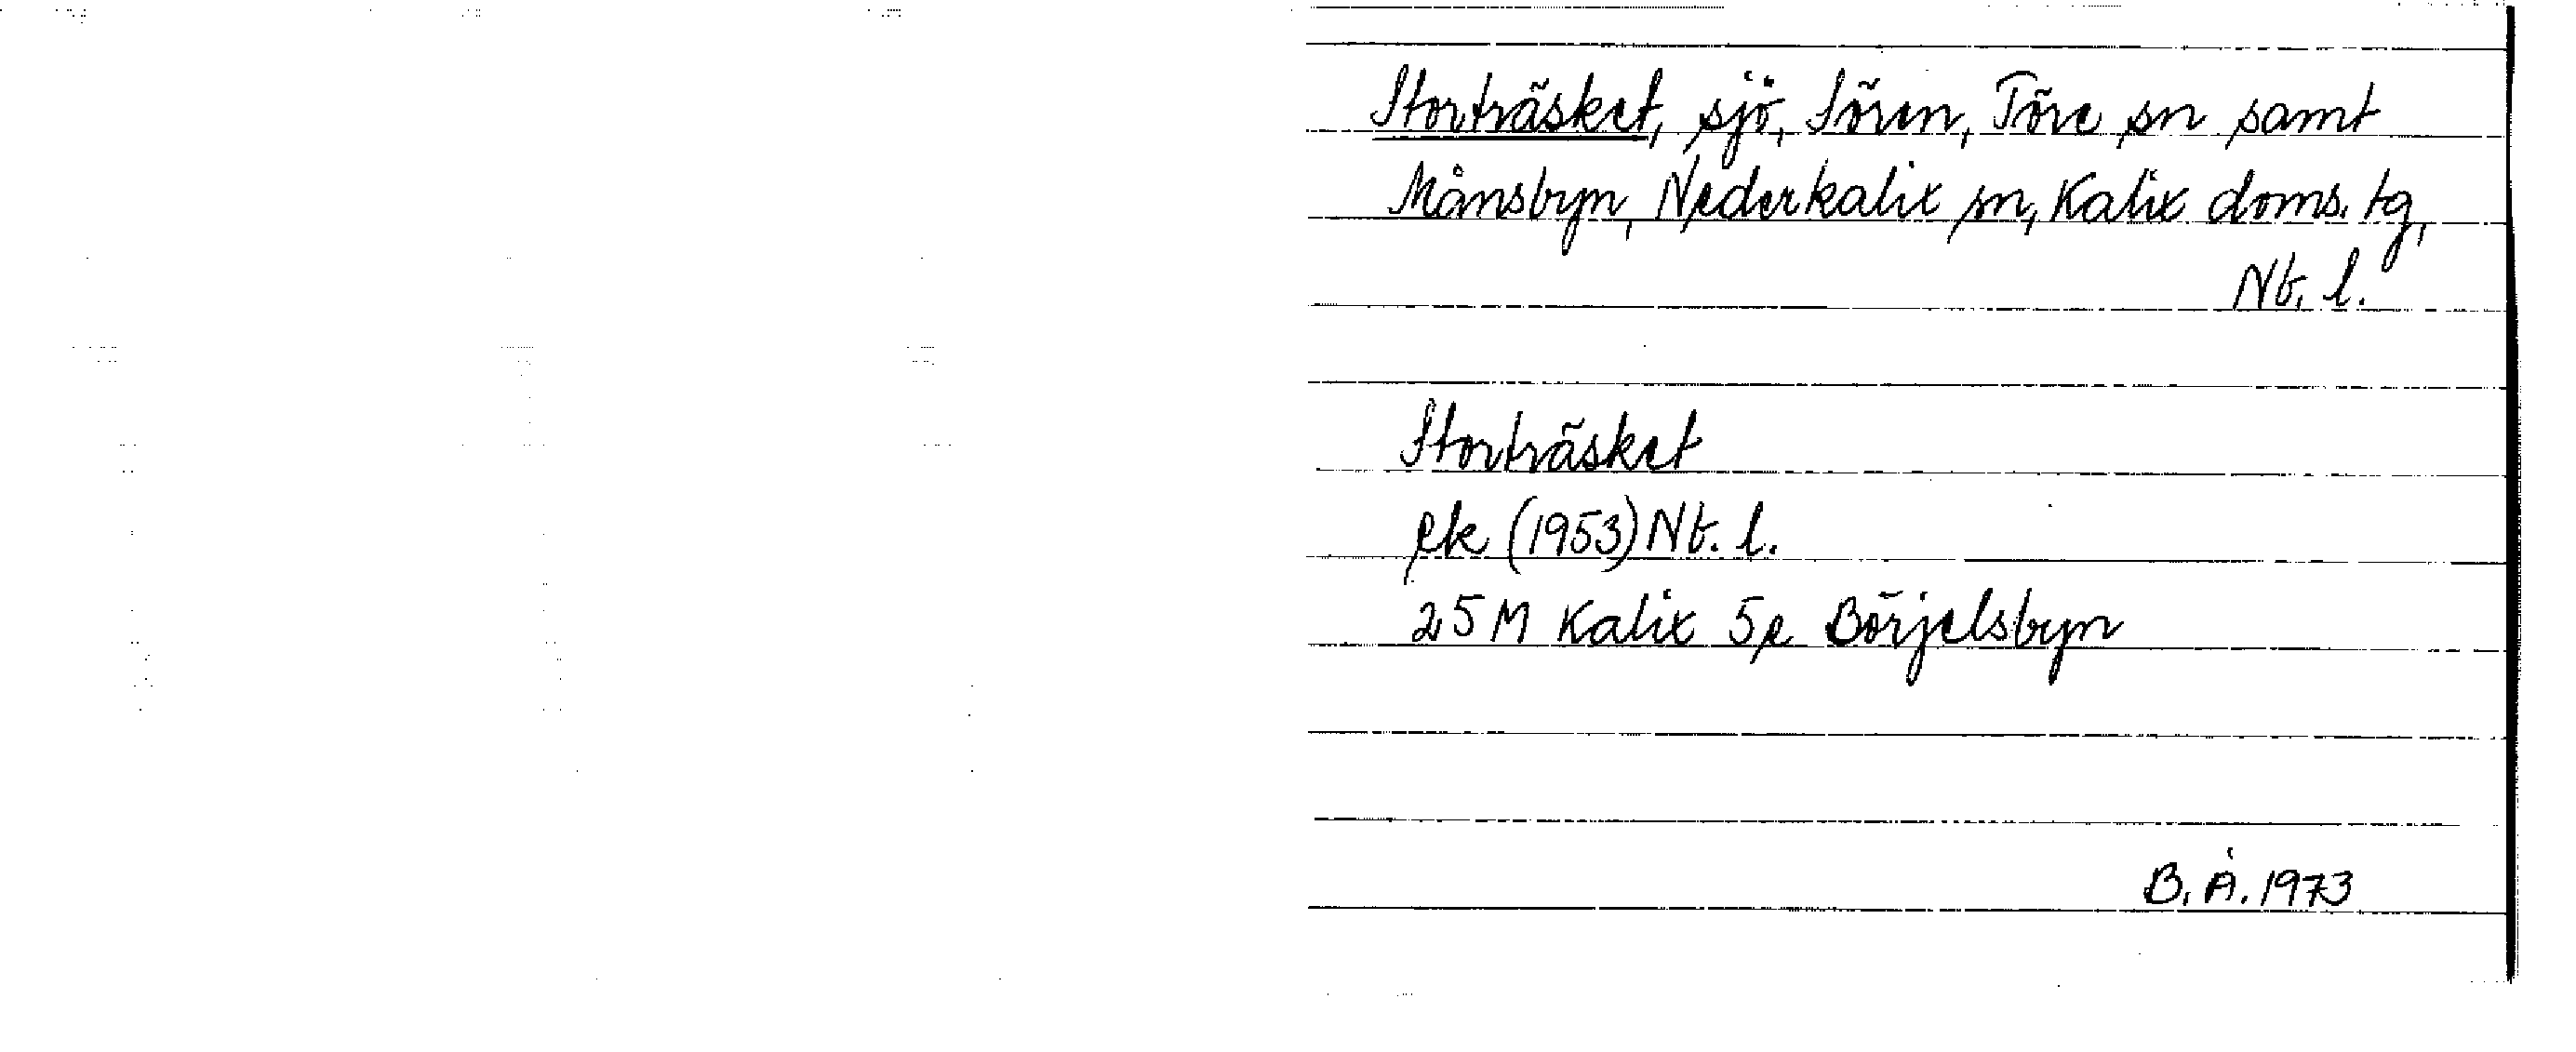 Storträsket, sjö, Sören, Töre sn samt
Månsbyn, Nederkalix sn, Kalix doms. tg,
Nb. l.
Storträsket
ek (1953) Nb. l.
25 M Kalix 5e Börjelsbyn
B. Å. 1973